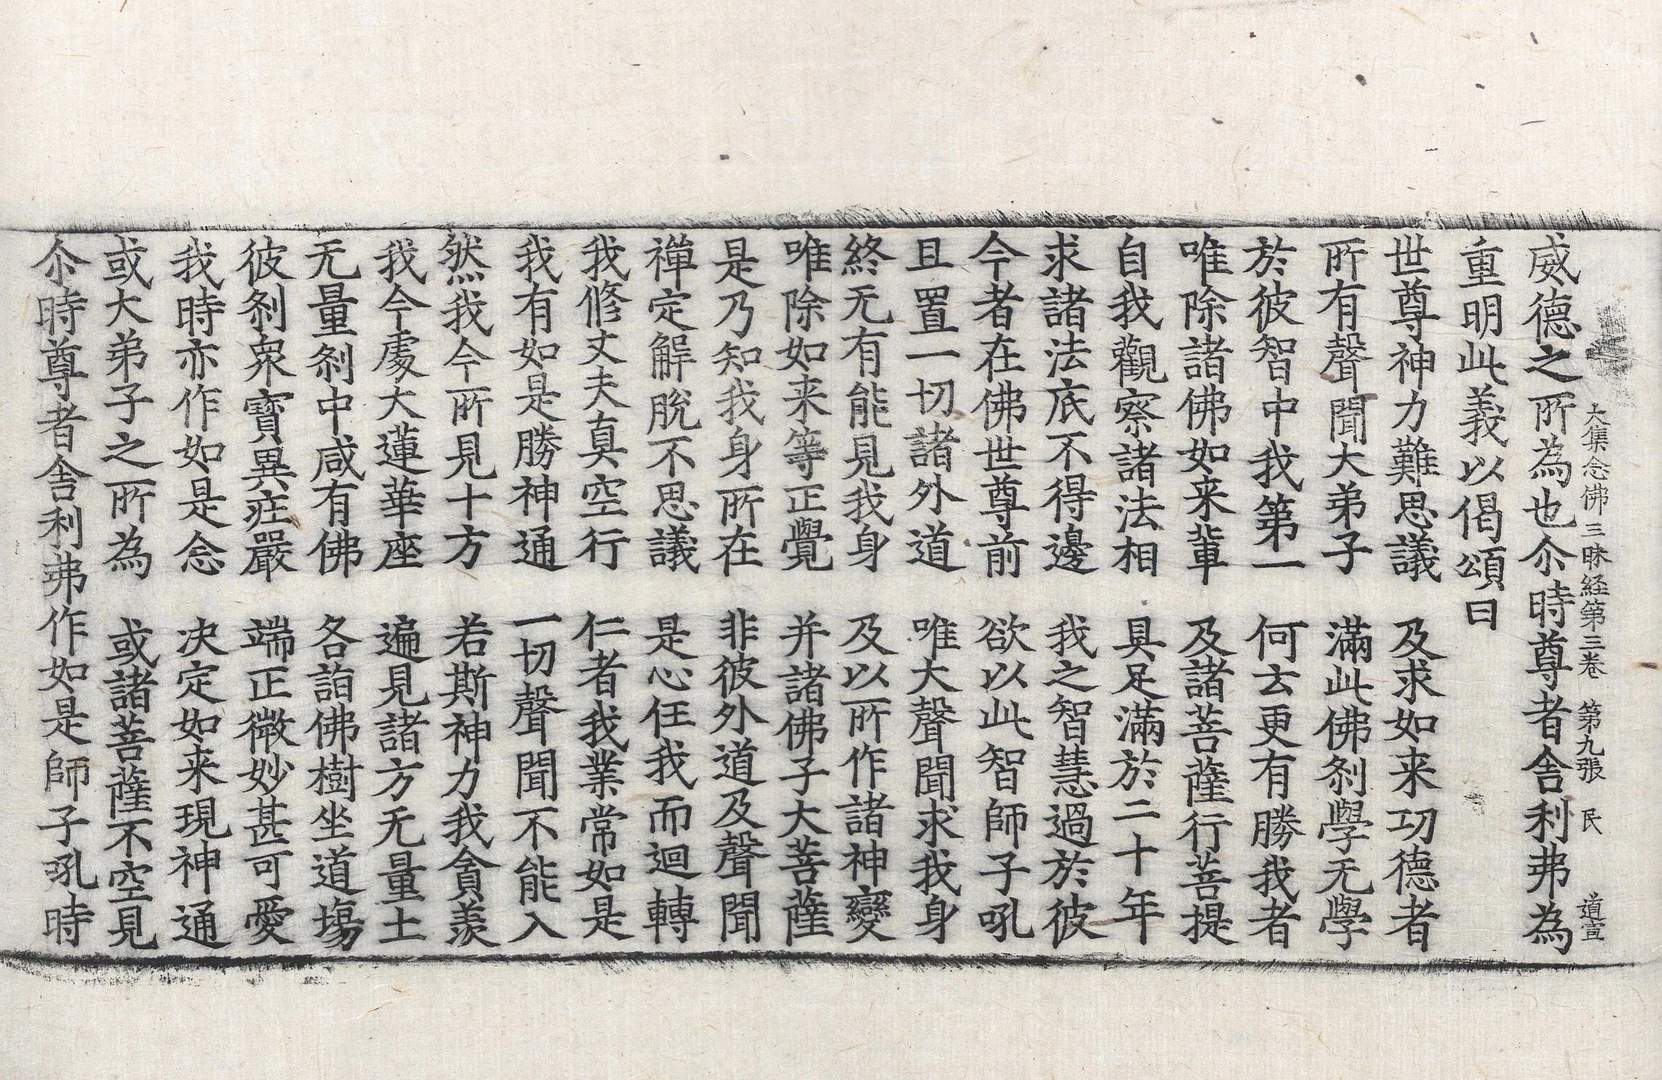 大集念佛三昧経第三卷 第九張 民 道宣
威德之所為也尒時尊者舍利弗為
重明此義以偈頌曰
世尊神力難思議 及求如来功德者
所有聲聞大弟子 滿此佛刹學无學
於彼智中我第一 何玄更有勝我者
唯除諸佛如来輩 及諸菩薩行菩提
自我觀察諸法相 具足滿於二十年
求諸法底不得邊 我之智慧過於彼
今者在佛世尊前 欲以此智師子吼
且置一切諸外道 唯大聲聞求我身
終无有能見我身 及以所作諸神變
唯除如来等正覺 并諸佛子大菩薩
是乃知我身所在 非彼外道及聲聞
禪定解脫不思議 是心任我而迴轉
我修丈夫真空行 仁者我業常如是
我有如是勝神通 一切聲聞不能入
然我今所見十方 若斯神力我貪羨
我今處大蓮華座 遍見諸方无量土
无量刹中咸有佛 各詣佛樹坐道場
彼刹衆寶異莊嚴 端正微妙甚可愛
我時亦作如是念 决定如来現神通
或大弟子之所為 或諸菩薩不空見
尒時尊者舍利弗作如是師子吼時